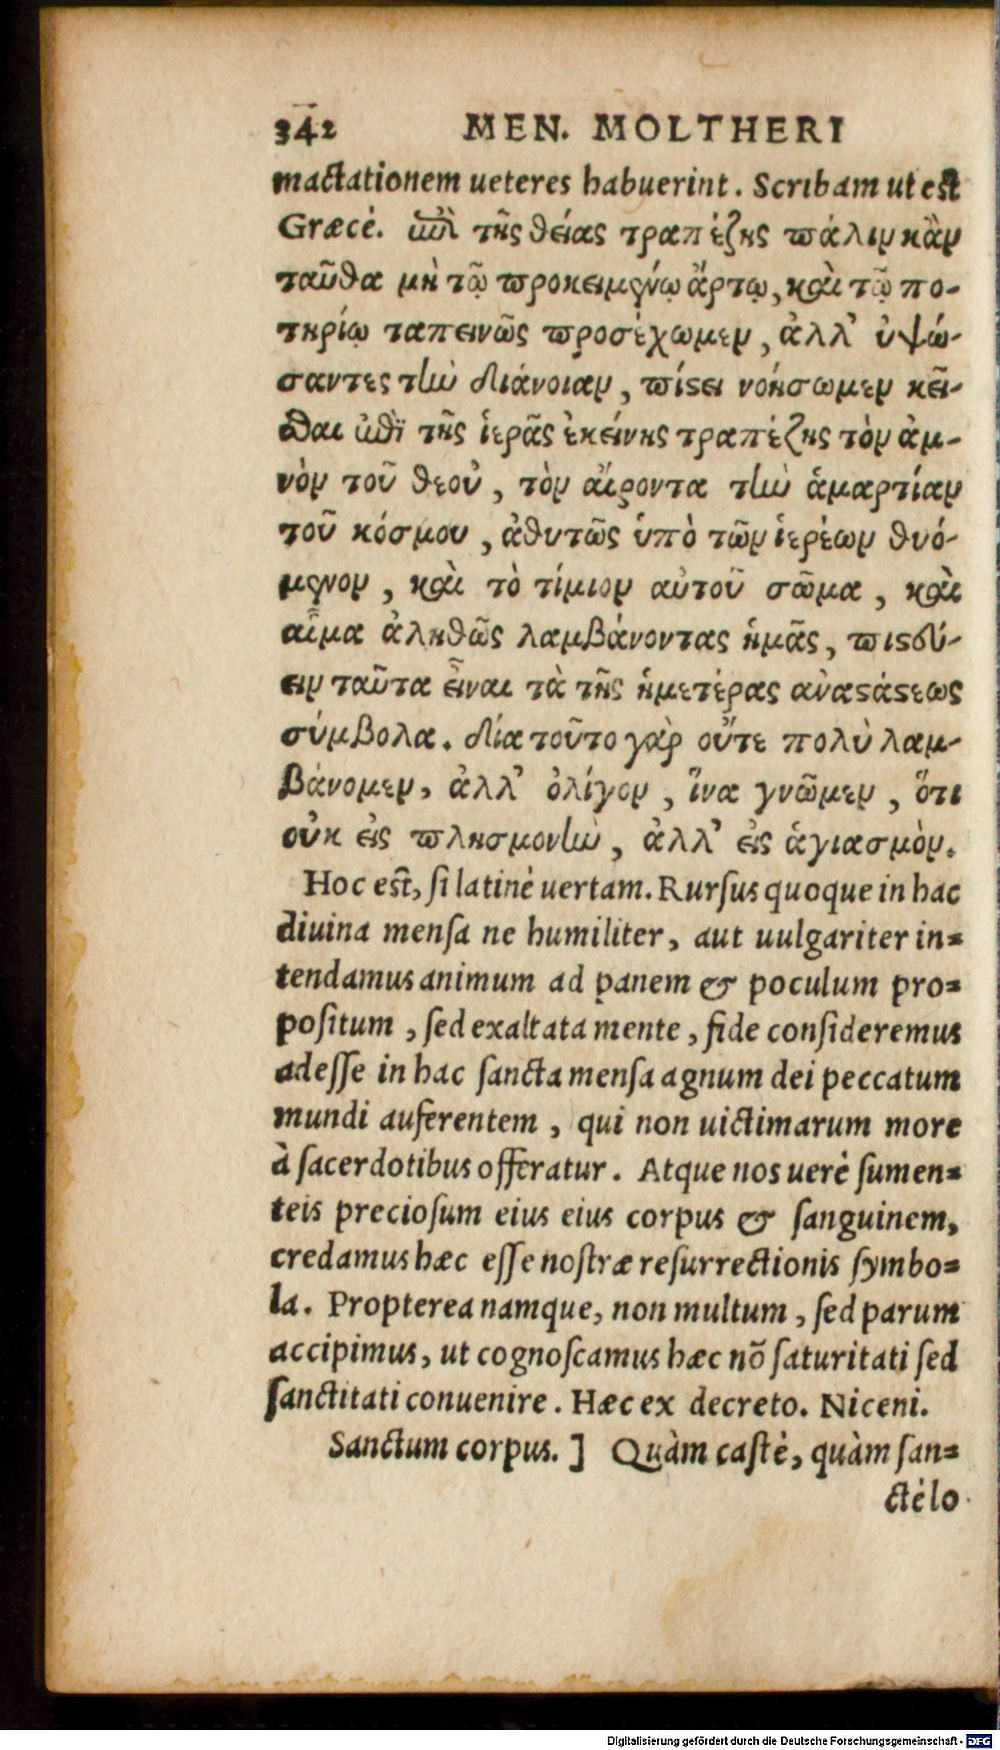 342 MEN. MOLTHERI
mactationem ueteres habuerint. Scribam ut est
Græcè. ἐπὶ τῆς θείας τραπέζης πάλιν κἀν
ταῦθα μὴ τῷ προκειμένῳ ἄρτῳ, καὶ τῷ πο-
τηρίῳ ταπεινῶς προσέχωμεν, ἀλλ' ὑψώ-
σαντες τὴν διάνοιαν, πίστει νοήσωμεν κεῖ-
σθαι ἐπὶ τῆς ἱερᾶς ἐκείνης τραπέζης τὸν ἀμ-
νὸν τοῦ θεοῦ, τὸν αἴροντα τὴν ἁμαρτίαν
τοῦ κόσμου, ἀθυτῶς ὑπὸ τῶν ἱερέων θυό-
μενον, καὶ τὸ τίμιον αὐτοῦ σῶμα, καὶ
αἷμα ἀληθῶς λαμβάνοντας ἡμᾶς, πιστεύ-
ειν ταῦτα εἶναι τὰ τῆς ἡμετέρας ἀναστάστεως
σύμβολα. δία τοῦτο γὰρ οὔτε πολὺ λαμ-
βάνομεν, ἀλλ' ὀλίγον, ἵνα γνῶμεν, ὅτι
οὐκ εἰς πλησμονὴν, ἀλλ' εἰς ἁγιασμὸν.
Hoc est, si latinè uertam. Rursus quoque in hac
diuina mensa ne humiliter, aut uulgariter in=
tendamus animum ad panem & poculum pro=
positum, sed exaltata mente, fide consideremus
adesse in hac sancta mensa agnum dei peccatum
mundi auferentem, qui non uictimarum more
à sacerdotibus offeratur. Atque nos uerè sumen=
teis preciosum eius eius corpus & sanguinem,
credamus hæc esse nostræ resurrectionis symbo=
la. Propterea namque, non multum, sed parum
accipimus, ut cognoscamus hæc nõ saturitati sed
sanctitati conuenire. Hæc ex decreto. Niceni.
Sanctum corpus. ] Quàm castè, quàm san=
ctè lo
Digitalisierung gefördert durch die Deutsche Forschungsgemeinschaft - DFG